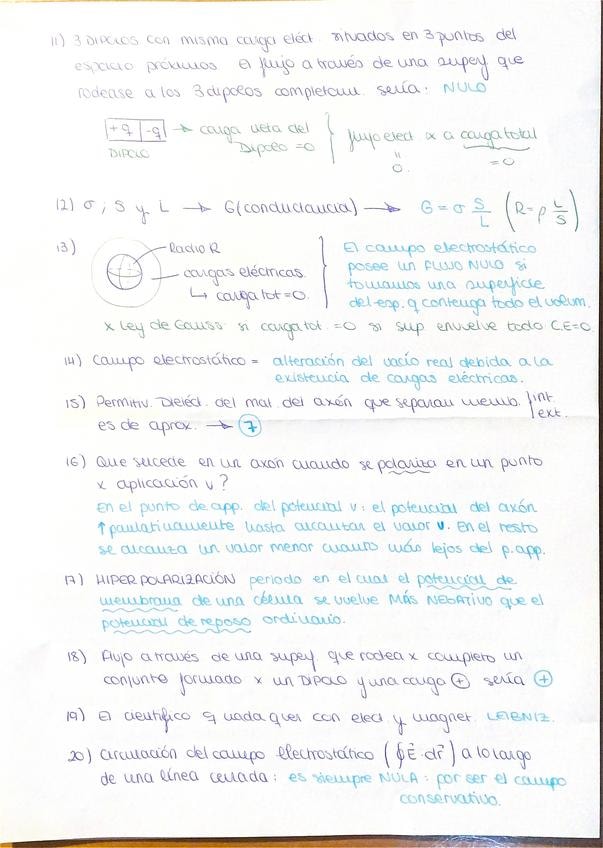 11) 3 DIPOLOS con misma carga eléct. situados en 3 puntos del
espacio próximos. El flujo a través de una superf que
rodease a los 3 dipolos completam. sería: NULO
+q | -q → carga neta del Dipolo = 0 } flujo elect x a carga total
DIPOLO
" 0. = 0
12) σ, S y L → G (conductancia) → G = σ S/L (R = ρ L/S)
13) Radio R
cargas eléctricas
↳ carga tot = 0.
El campo electrostático
posee un FLUJO NULO si
tomamos una superficie
del esp. q contenga todo el volum.
x Ley de Gauss: si carga tot. = 0 si sup envuelve todo C.E=0
14) Campo electrostático = alteración del vacío real debida a la
existencia de cargas eléctricas.
15) Permitiv. Dieléct. del mat. del axón que separan memb. int. ext.
es de aprox. → 7
16) Que sucede en un axón cuando se polariza en un punto
x aplicación v?
En el punto de app. del potencial v: el potencial del axón
↑ paulatinamente hasta alcanzar el valor v. En el resto
se alcanza un valor menor cuanto más lejos del p. app.
17) HIPERPOLARIZACIÓN periodo en el cual el potencial de
membrana de una célula se vuelve MÁS NEGATIVO que el
potencial de reposo ordinario.
18) Flujo a través de una superf. que rodea x completo un
conjunto formado x un DIPOLO y una carga ⊕ sería ⊕
19) El científico q nada q ver con elect. y magnet. LEIBNIZ.
20) Circulación del campo electrostático (∮E⃗·dr⃗) a lo largo
de una línea cerrada: es siempre NULA: por ser el campo
conservativo.